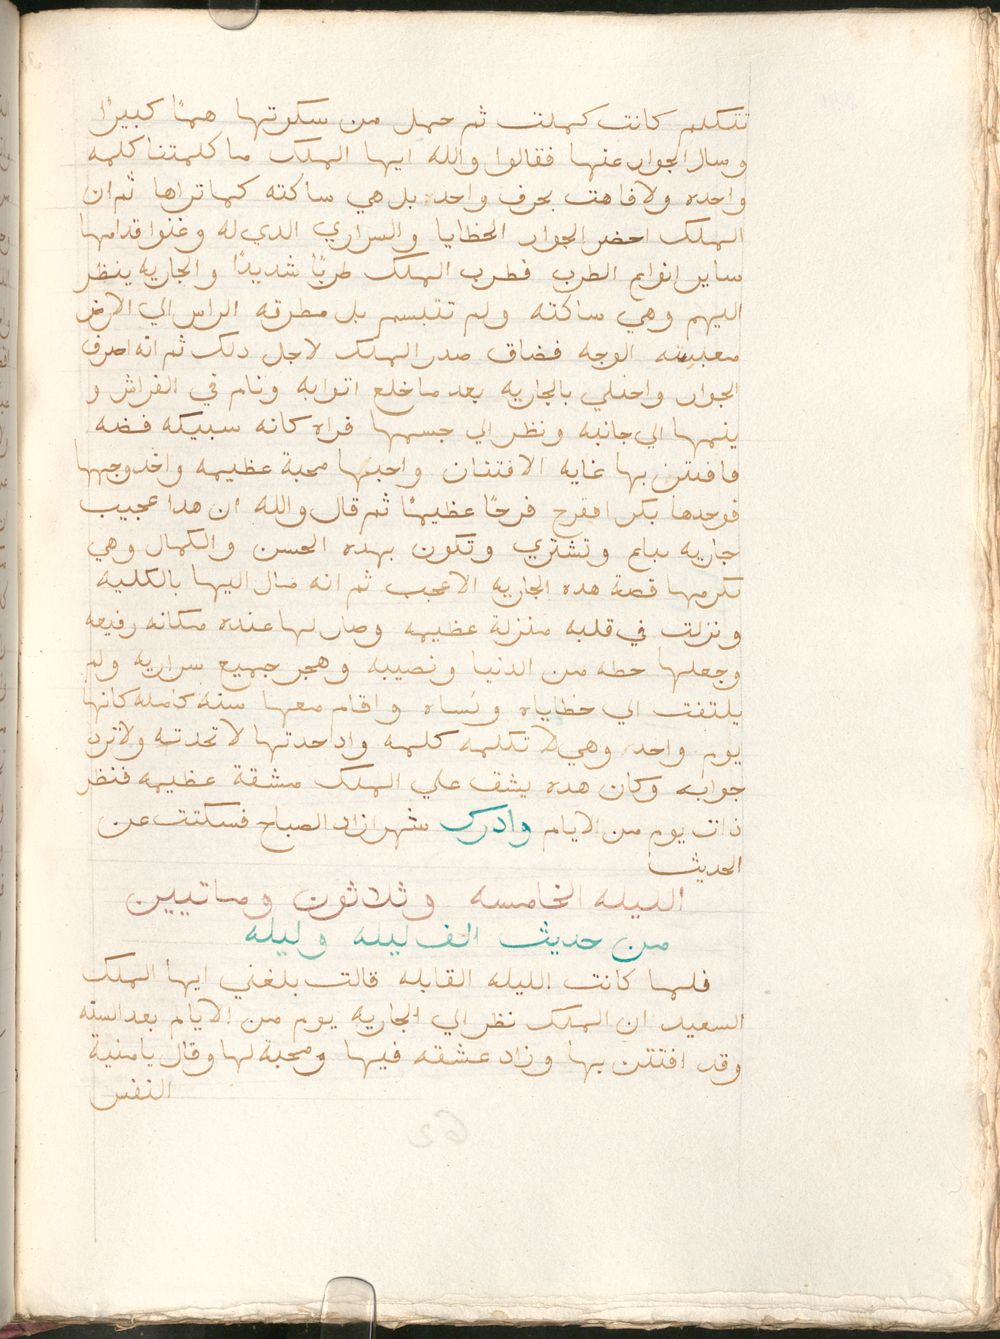 تتكلم كانت كملت ثم حمل من سكوتها همًا كبيرًا
وسال الجوار عنها فقالوا والله ايها الملك ما كلمتنا كلمه
واحده ولا فاهت بحرف واحده بل هي ساكته كما تراها ثم ان
الملك احضر الجوار الحظايا والسراري الدي له وغنوا قدامها
ساير انواع الطرب فطرب الملك طربًا شديدًا والجاريه ينظر
اليهم وهي ساكته ولم تتبسم بل مطرقه الراس الي الارض
الوجه فضاق صدر الملك لاجل دلك ثم انه اصرف
الجوار واختلي بالجاريه بعد ما خلع اتوابه ونام في الفراش و
ينمها الي جانبه ونظر الي جسمها فراه كانه سبيكه فضه
فافتتن بها غايه الافتتان واحبها محبة عظيمه واخد وجهها
فوجدها بكر اففرح فرحًا عظيمًا ثم قال والله ان هدا عجيب
جاريه تباع وتشتري وتكون بهده الحسن والكمال وهي
قصة هده الجاريه الاعجب ثم انه مال اليها بالكليه
ونزلت في قلبه منزلة عظيمه وصار لها عنده مكانه رفيعه
وجعلها حطه من الدنيا ونصيبه وهجر جميع سراريه ولم
يلتفت الي حظاياه ونساه واقام معها سنه كامله كانها
يوم واحد وهي لا تكلمه كلمه واد حدتها لا تحدته ولا ترد
جوابه وكان هده يشق علي الملك مشقة عظيمه فنظر
ذات يوم من الايام وادرك شهرازاد الصباح فسكتت عن
الحديث
الليله الخامسه وثلاثون وماتيين
من حديث الف ليله وليله
فلما كانت الليله القابله قالت بلغني ايها الملك
السعيد ان الملك نظر الي الجاريه يوم من الايام بعد السنه
وقد افتتن بها وزاد عشقه فيها ومحبة لها وقال يا منية
النفس
62